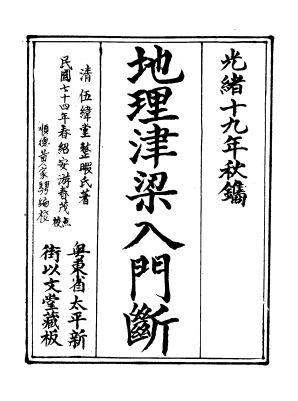 光緒十九年秋鐫
地理津梁入門斷
清伍緯堂整暇氏著
民國七十四年春紹安游春茂点校
順德黃家駒編校
粤東省太平新
街以文堂藏板